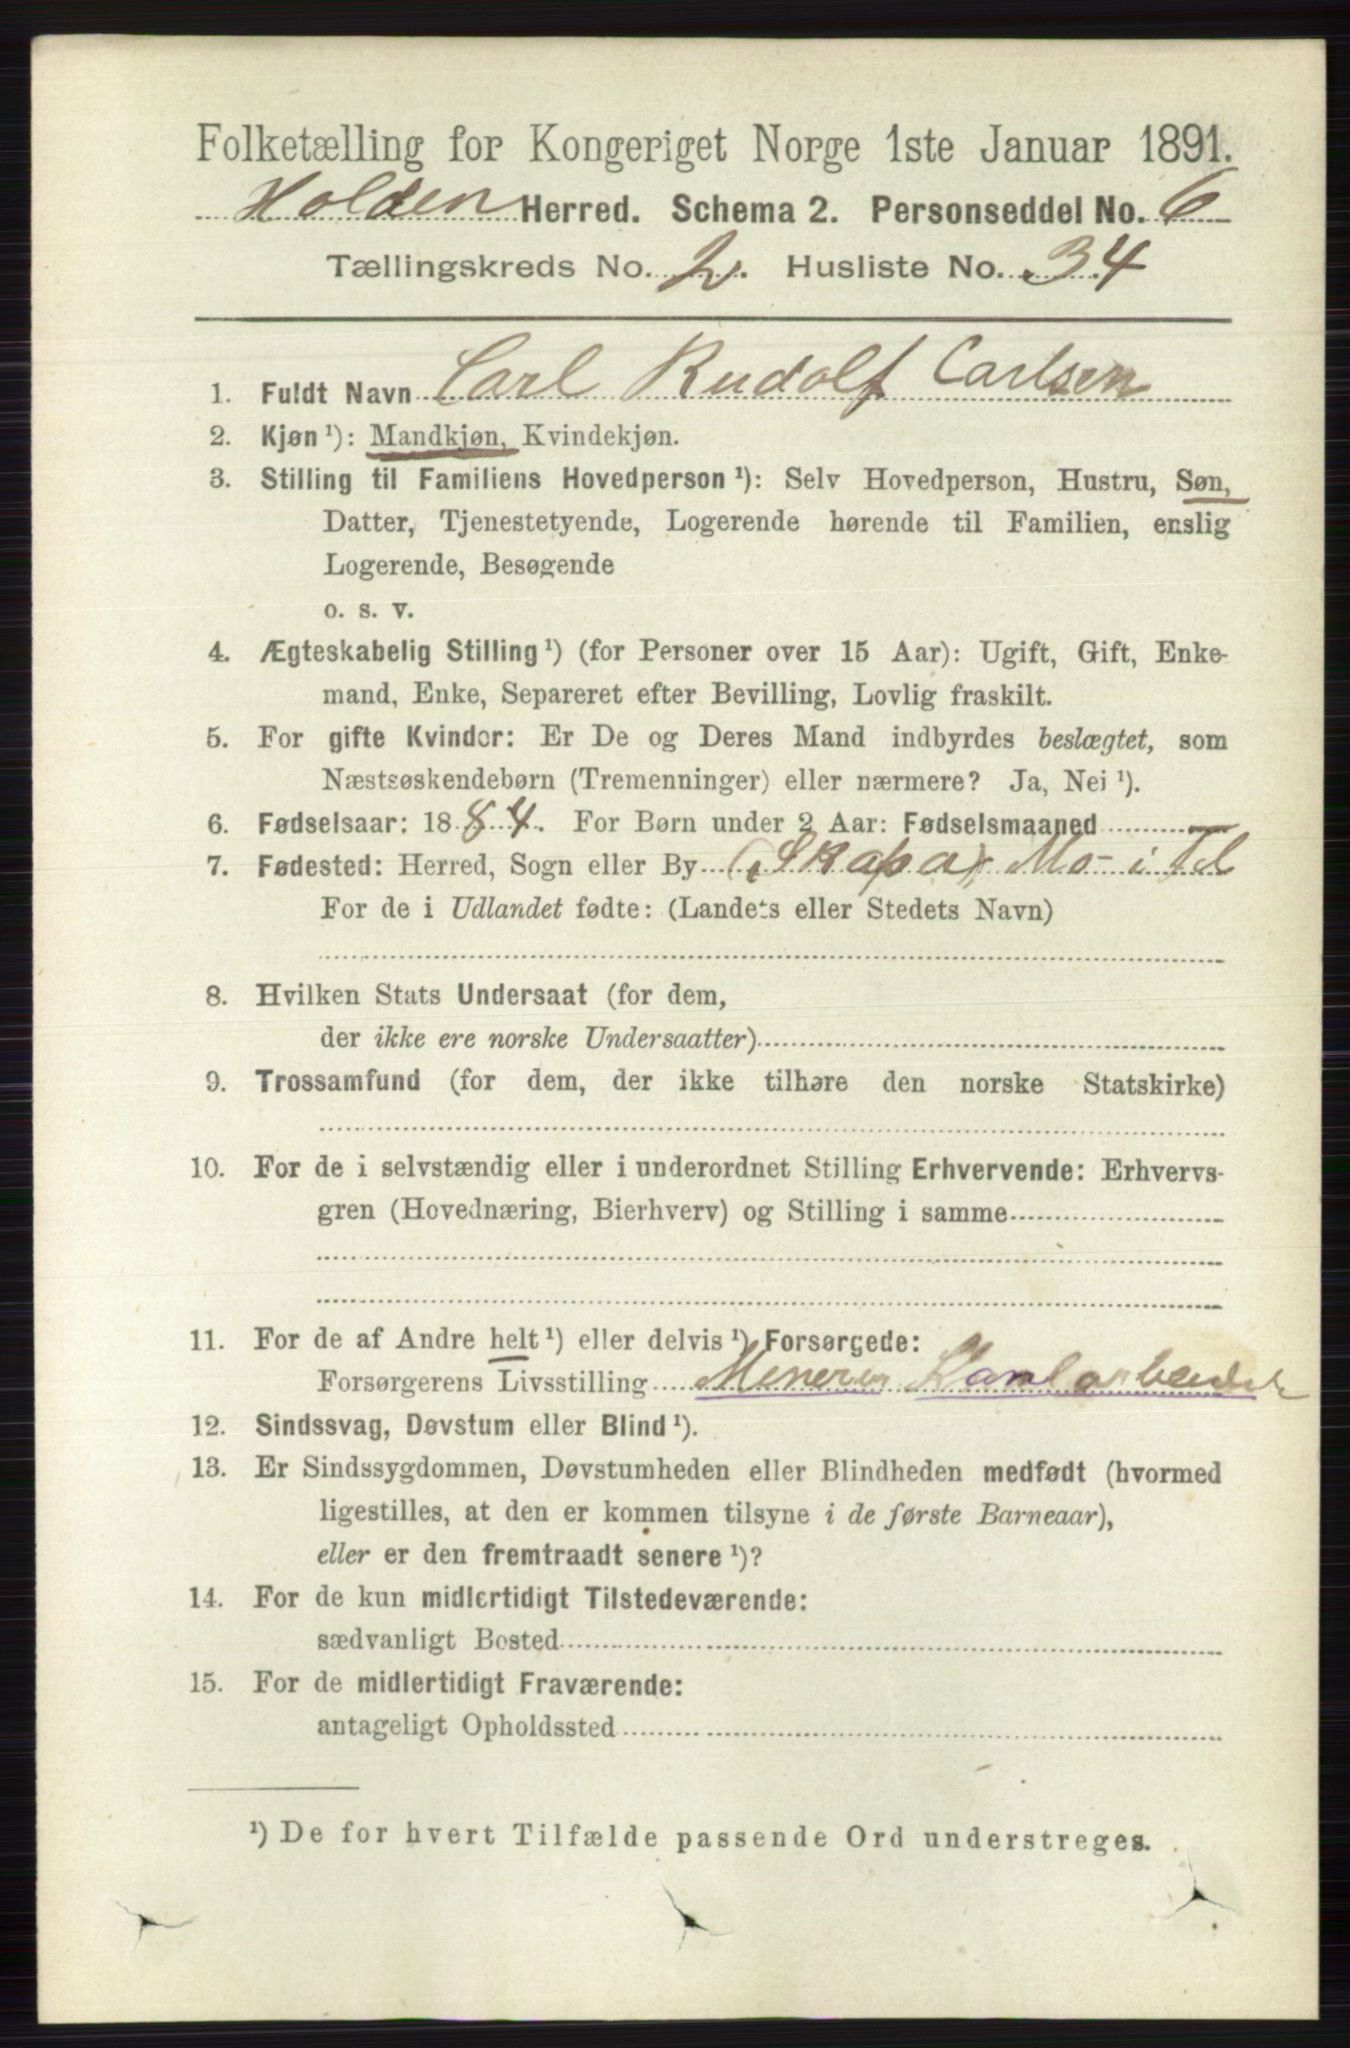 Folketælling for Kongeriget Norge 1ste Januar 1891.
Holden Herred. Schema 2. Personseddel No. 6
Tællingskreds No. 2. Husliste No. 34
1. Fuldt Navn Carl Rudolf Carlsen
2. Kjøn ¹): Mandkjøn, Kvindekjøn.
3. Stilling til Familiens Hovedperson ¹): Selv Hovedperson, Hustru, Søn,
Datter, Tjenestetyende, Logerende hørende til Familien, enslig
Logerende, Besøgende
o. s. v.
4. Ægteskabelig Stilling ¹) (for Personer over 15 Aar): Ugift, Gift, Enke-
mand, Enke, Separeret efter Bevilling, Lovlig fraskilt.
5. For gifte Kvinder: Er De og Deres Mand indbyrdes beslægtet, som
Næstsøskendebørn (Tremenninger) eller nærmere? Ja, Nei ¹).
6. Fødselsaar: 1884. For Børn under 2 Aar: Fødselsmaaned
7. Fødested: Herred, Sogn eller By (Skapa) Mo - i Tel
For de i Udlandet fødte: (Landets eller Stedets Navn)
8. Hvilken Stats Undersaat (for dem,
der ikke ere norske Undersaatter)
9. Trossamfund (for dem, der ikke tilhøre den norske Statskirke)
10. For de i selvstændig eller i underordnet Stilling Erhvervende: Erhvervs-
gren (Hovednæring, Bierhverv) og Stilling i samme
11. For de af Andre helt ¹) eller delvis ¹) Forsørgede:
Forsørgerens Livsstilling Minerer Kanlarbeider
12. Sindssvag, Døvstum eller Blind ¹).
13. Er Sindssygdommen, Døvstumheden eller Blindheden medfødt (hvormed
ligestilles, at den er kommen tilsyne i de første Barneaar),
eller er den fremtraadt senere ¹)?
14. For de kun midlertidigt Tilstedeværende:
sædvanligt Bosted
15. For de midlertidigt Fraværende:
antageligt Opholdssted
¹) De for hvert Tilfælde passende Ord understreges.